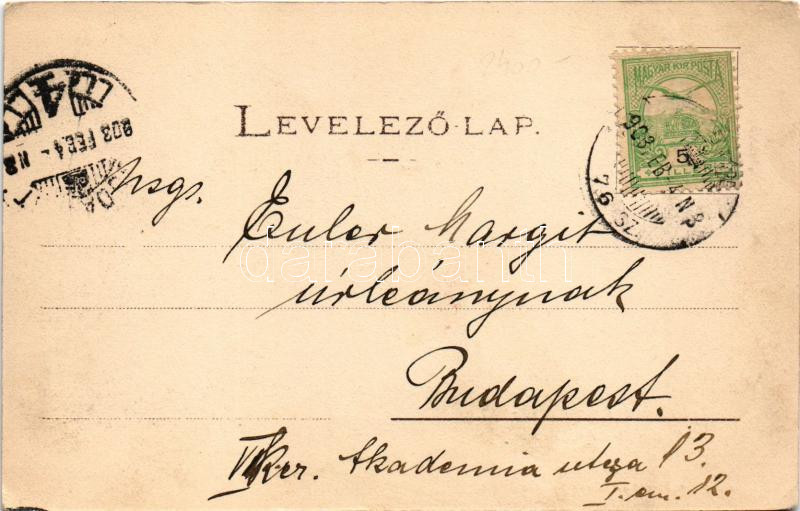 LEVELEZŐ-LAP.
MAGYAR KIR. POSTA
5
903 FEB 4 N 8
76 SZ.
903 FEB. 4 - N 8
Nsgs.
Euler Margit
úrleánynak
Budapest.
ker. Akademia utcza 13.
I. em. 12.
darabanth